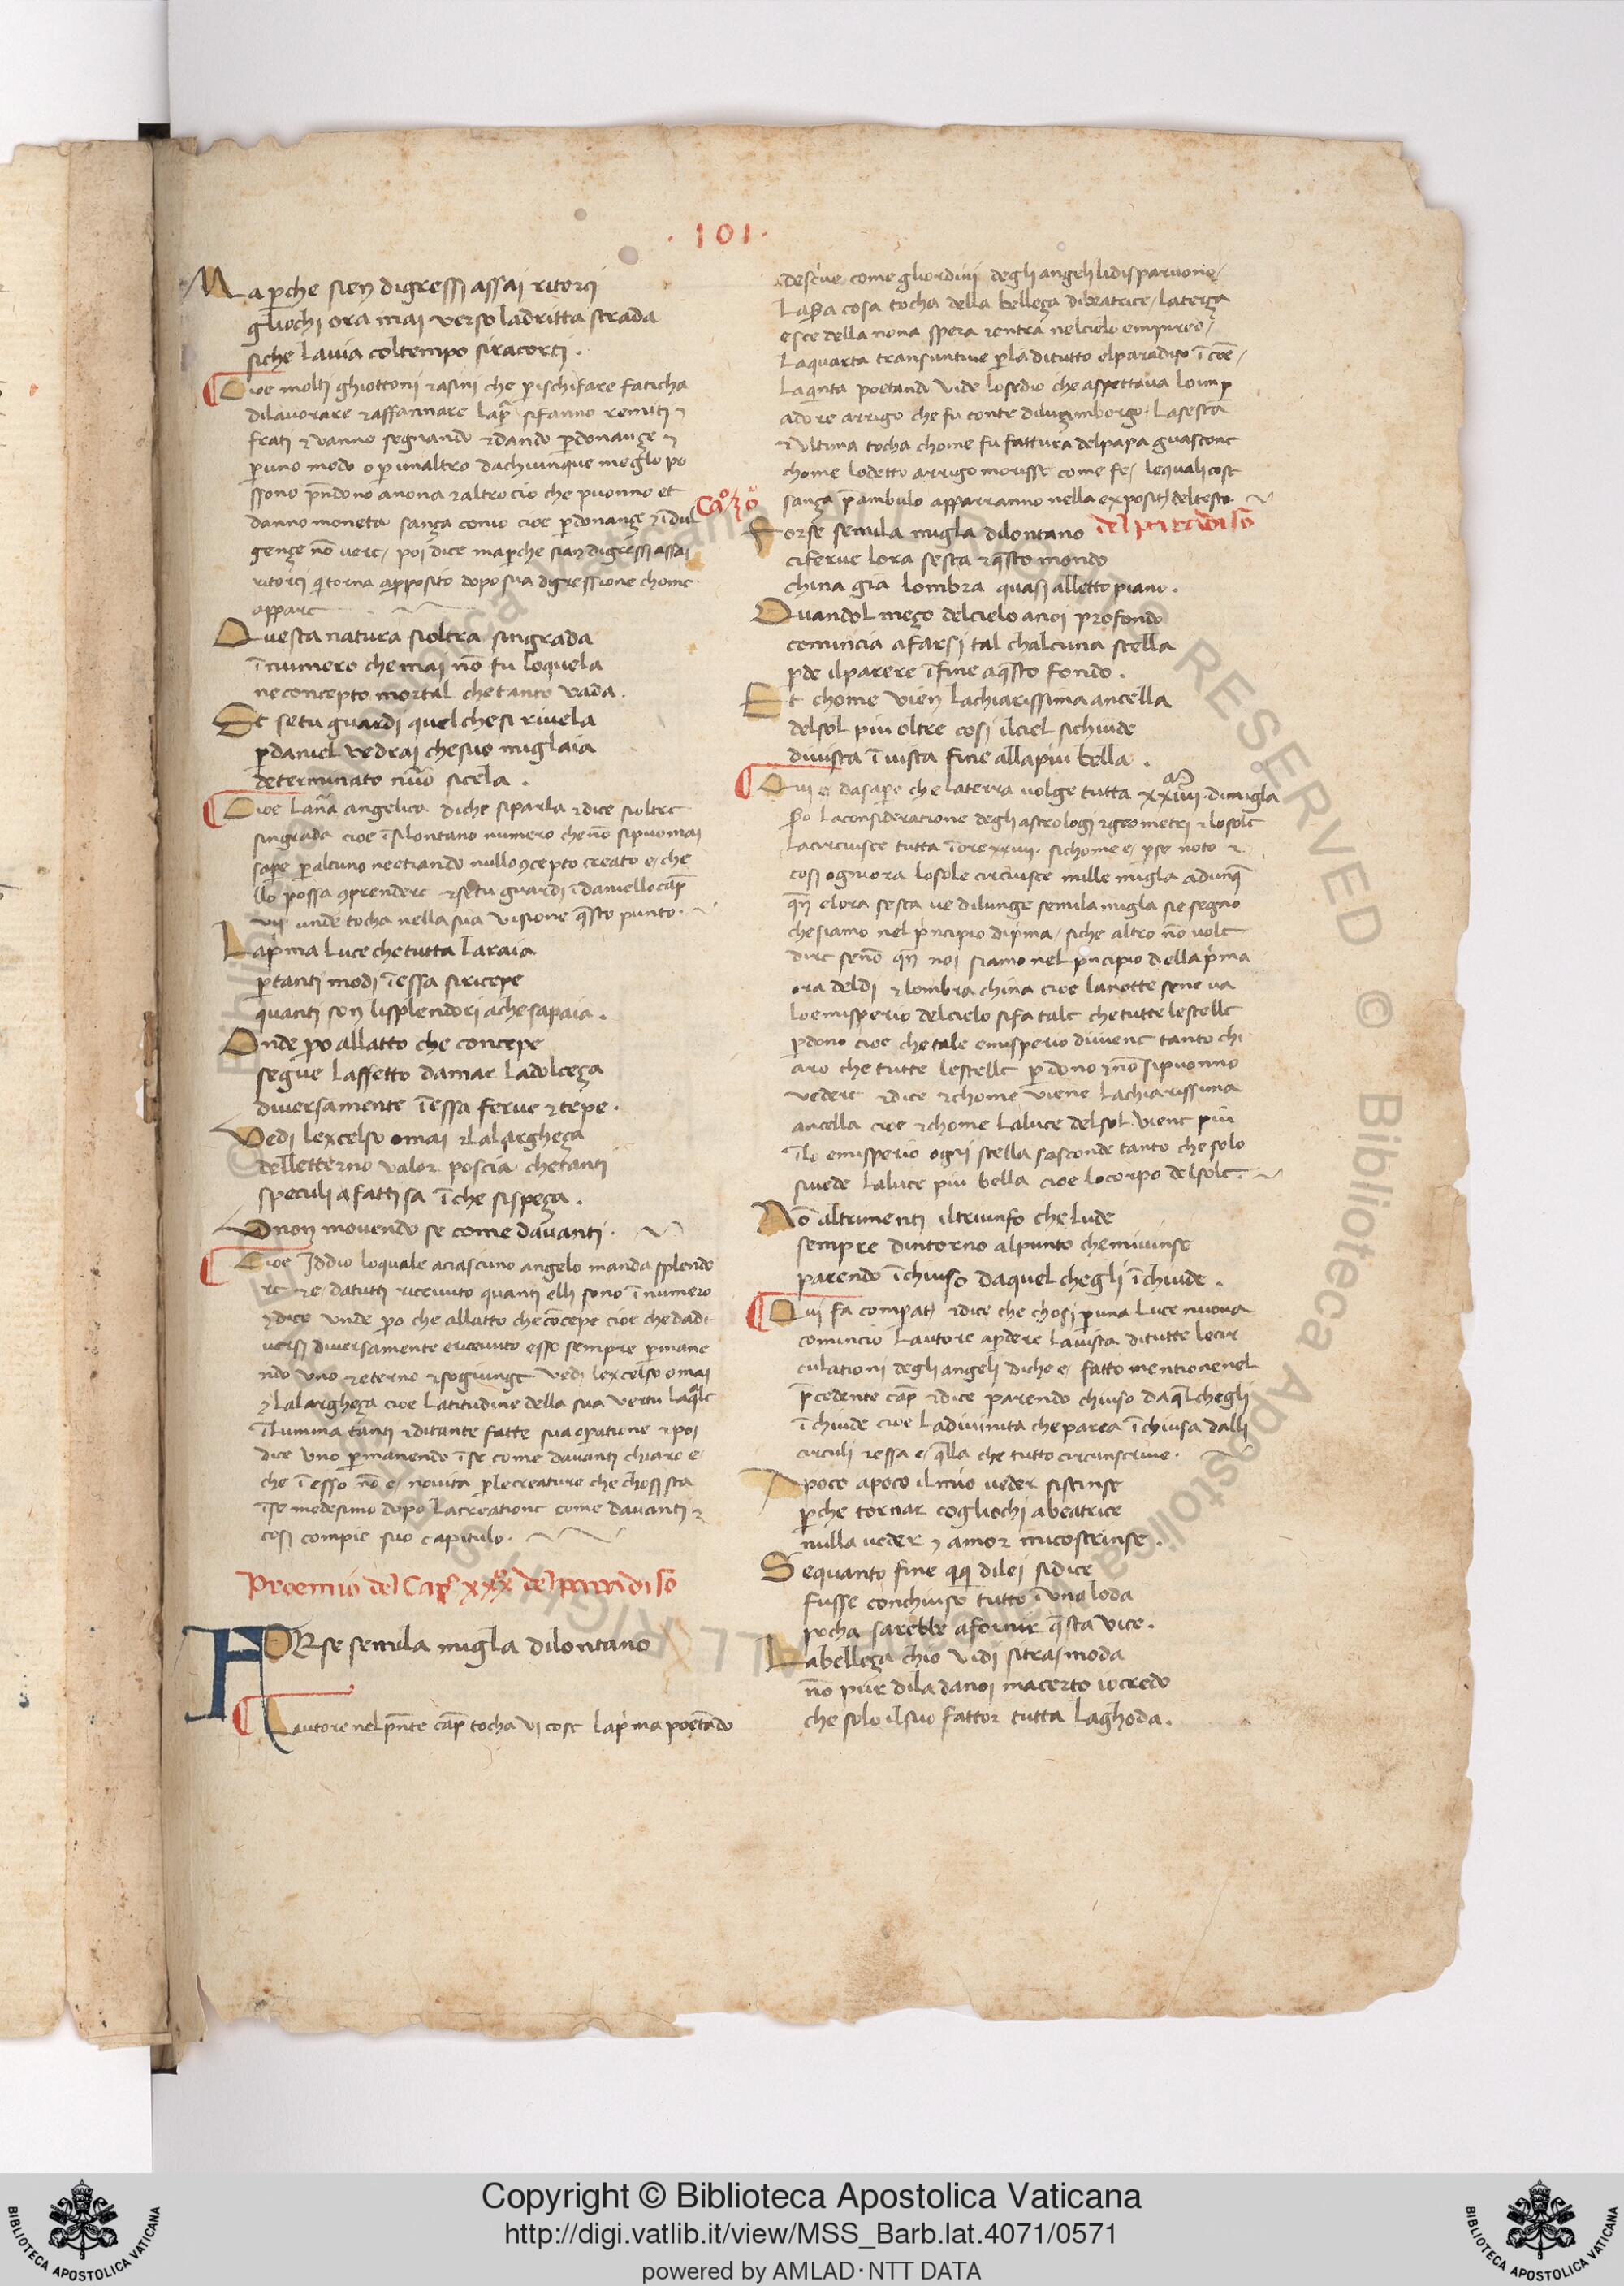 · 101 ·
Ma ꝑche sien digressi assai ritorci
gliochi ora mai verso ladritta strada
siche lauia coltempo siracorci .
Cioe molti ghiottoni ⁊asini che ꝑischifare faticha
dilauorare ⁊affannare sifanno remiti ⁊
frati ⁊ vanno segnando ⁊dando ꝑdonanze ⁊
ꝑuno modo o ꝑ unaltro dachiunque meglo po
ssono pn̄dono anona ⁊altro cio che puonno et
danno moneta sanza conio cioe ꝑdonanze ⁊ īdul
genze nō vere / poi dice maꝑche sian digressi assai
ritorci qi torna aꝑposito doposua digressione chome
appare
Questa natura sioltra singrada
īnumero che mai nō fu loquela
neconcepto mortal chetanto vada .
Et setu guardi quelchesi riuela
ꝑdaniel vedrai chesuo miglaia
determinato nūo sicela .
Cioe lanā angelica diche siparla ⁊dice sioltre
singrada cioe īsilontano numero chenō sipuomai
saꝑe ꝑalcuno necriando nulloꝯcepto creato e / che
llo possa ꝯprendere ⁊setu guardi īdaniellocap̄
vii unde tocha nella sua visione q̄sto punto .
Lapͥma luce chetutta laraia
ꝑtanti modi īessa siricepe
quanti son lisplendori achesapaia .
Onde ꝑo allatto che concepe
segue laffetto damar ladolceza
diuersamente īessa ferue ⁊tepe .
Vedi lexcelso omai ⁊lalargheza
delletterno valor poscia chetanti
speculi afattisa īche sispeza .
Vnon mouendo se come dauanti .
Cioe Iddio loquale aciascuno angelo manda splendo
re ⁊e / datutti riceuuto quanti elli sono īnumero
⁊dice unde ꝑo che allatto checōcepe cioe chedadi
uersi diuersamente ericeuuto esso sempre ꝑmane
ndo uno ⁊eterno ⁊sogiunge vedi lexcelso omai
⁊lalargheza cioe latitudine della sua vertu laq̄le
īllumina tanti ⁊ditante fatte sua oꝑatione ⁊poi
dice uno ꝑmanendo īse come dauanti chiaro e /
che īesso nō e / nouita ꝑlecreature che chosi sta
īse medesimo dopo lacreatione come dauanti ⁊
cosi compie suo capitulo .
Proemio del Cap̊ xxx̊ del paradiso
FORse semila migla dilontano
Lautore nelpn̄te cap̄ tocha vi cose lapͥma poetando
descͥue come gliordini degliangeli lidisparuono /
la cosa tocha della belleza dibeatrice / laterza
esce della nona spera ⁊entra nelcielo empireo /
laquarta transuntiue ꝑla ditutto elparadiso ī
laqͥnta poetando vide losedio che aspettaua loimꝑ
adore arrigo che fu conte diluzimborgo . lasesta
⁊ultima tocha chome fu fattura delpapa guascone
chome lodetto arrigo morisse come fe / lequalicose
sanza p̄ambulo apparranno nella expositⳅ deltesto .
Cå 30̊
del paradiso
Forse semila migla dilontano
ciferue lora sesta ⁊q̄sto mondo
china gia lombra quasi alletto piano .
Quandol mezo delcielo anoi profondo
comincia afarsi tal chalcuna stella
ꝑde ilparere īfine aq̄sto fondo .
Et chome vien lachiarissima ancella
delsol piu oltre cosi ilciel sichiude
diuista ī uista fine allapiu bella .
Qui e / dasaꝑe che laterra volge tutta xxiiii . dimigla
laconsideratione degli astrologi ⁊geometri ⁊losole
lacircuisce tutta īore xxiiii . sichome e / ꝑse noto ⁊
cosi ogniora losole circuisce mille migla adunq̄
qn̄ elora sesta ue dilunge semila migla sie segno
chesiamo nel pͥncipio dipͥma / siche altro nō uole
dire senō qn̄ noi siamo nel pͥncipio della pͥma
ora deldi ⁊lombra china cioe lanotte sene ua
loemisperio delcielo sifa tale chetutte lestelle
ꝑdono cioe chetale emisperio diuiene tanto chi
aro che tutte lestelle ꝑdono ⁊nō sipuonno
vedere ⁊dice ⁊chome viene lachiarissima
ancella cioe ⁊chome laluce delsol viene piu
īlo emisperio ogni stella sasconde tanto che solo
siuede laluce piu bella cioe locorpo delsole .
Nō altrimenti iltriunfo cheLude
sempre dintorno alpunto chemiuinse
parendo īchiuso daquel chegli īchiude .
Qui fa compatⳅ ⁊dice che chosi ꝑuna luce nuoua
comincio lautore aꝑdere lauista ditutte lecir
culationi degli angeli diche e / fatto mentionenel
p̄cedente cap̄ ⁊dice parendo chiuso daq̄lchegli
īchiude cioe ladiuinita cheparea īchiusa dalli
circuli ⁊essa e / q̄lla che tutto circunscriue .
Apoco apoco ilmio veder sistinse
ꝑche tornar cogliochi abeatrice
nulla ueder ⁊ amor micostrinse .
Sequanto fine qͥ dilei sidice
fusse conchiuso tutto ī una loda
pocha sarebbe afornir q̄sta vice .
Labelleza chio vidi sitrasmoda
nō pur dila danoi macerto iocredo
che solo ilsuo fattor tutta laghoda .
Copyright © Biblioteca Apostolica Vaticana
http://digi.vatlib.it/view/MSS_Barb.lat.4071/0571
powered by AMLAD·NTT DATA
BIBLIOTECA APOSTOLICA VATICANA
BIBLIOTECA APOSTOLICA VATICANA